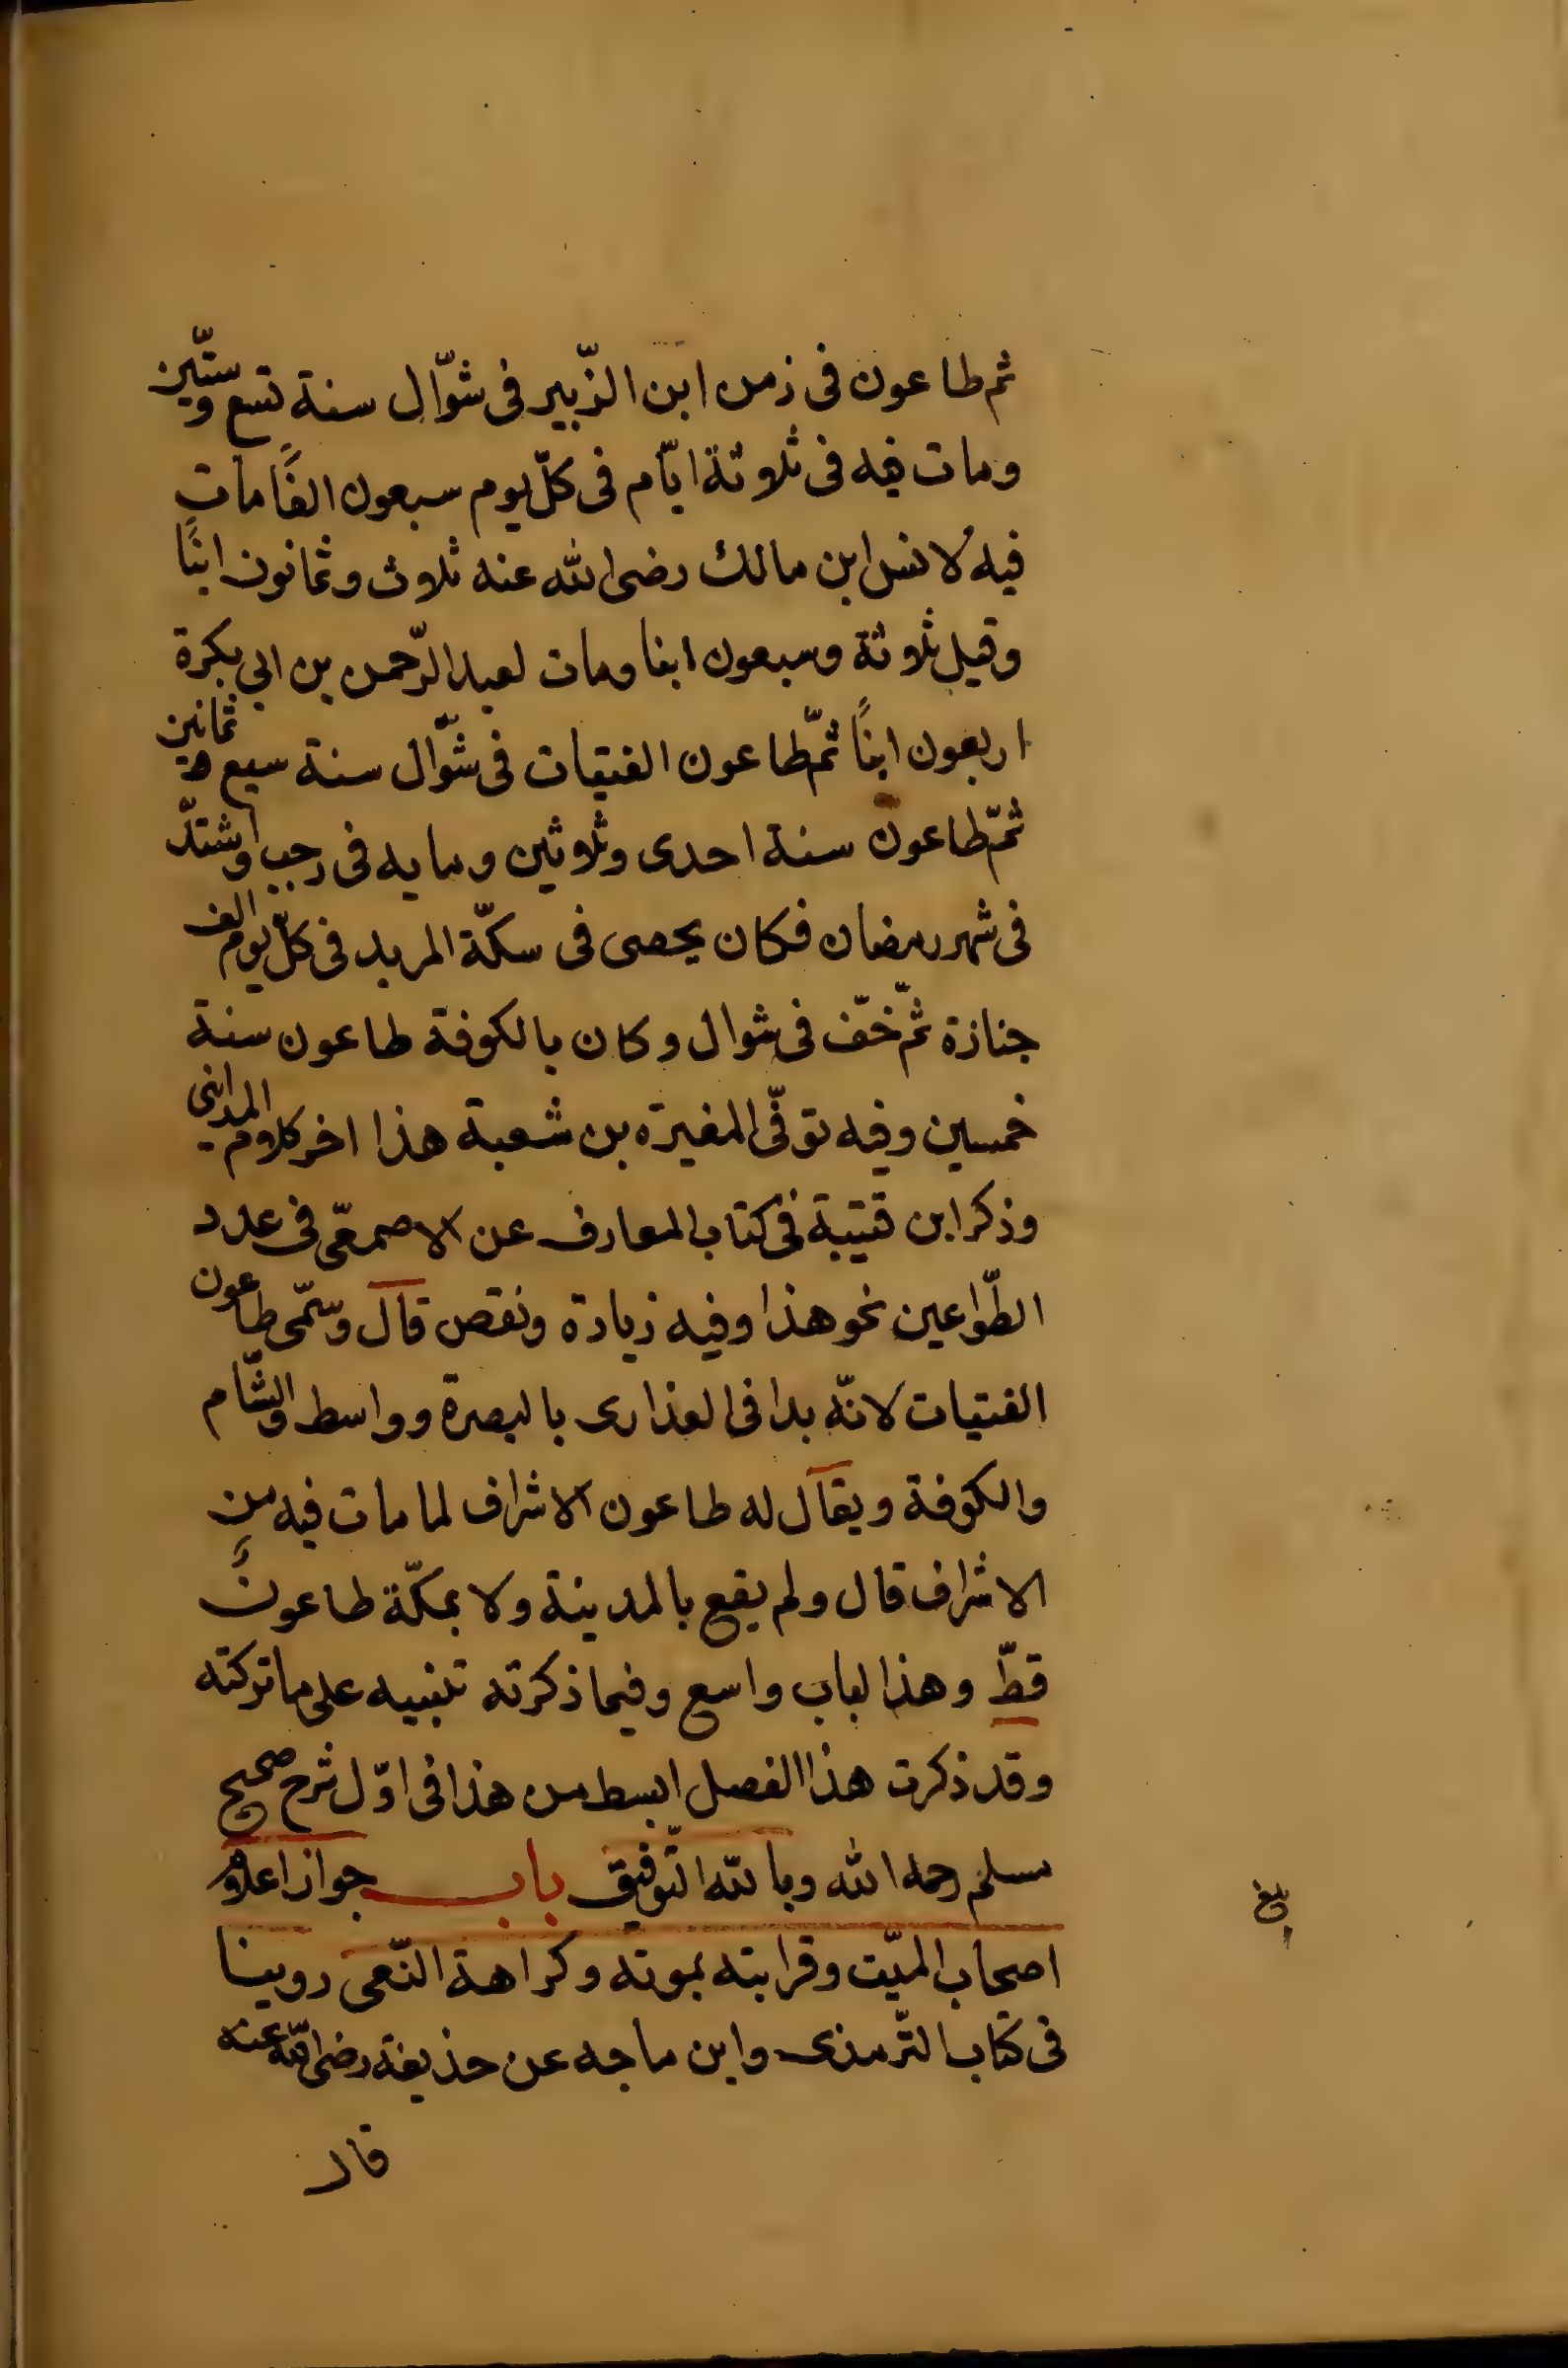 ثم طاعون فى زمن ابن الزّبير فى شوّال سنة تسع وستّين
ومات فيه فى ثلاثة ايّام فى كلّ يوم سبعون الفًا مات
فيه لانس ابن مالك رضى الله عنه ثلاث وثمانون ابنًا
وقيل ثلاثة وسبعون ابنا ومات لعبد الرّحمن بن ابى بكرة
اربعون ابنًا ثمّ طاعون الفتيات فى شوّال سنة سبع وثمانين
ثمّ طاعون سنة احدى وثلاثين ومايه فى رجب واشتدّ
فى شهر رمضان فكان يحصى فى سكّة المربد فى كلّ يوم الف
جنازة ثمّ خفّ فى شوال وكان بالكوفة طاعون سنة
خمسين وفيه توفّى المغيرة بن شعبة هذا اخر كلام المداينى
وذكر ابن قتيبة فى كتاب المعارف عن الاصمعىّ فى عدد
الطّواعين نحو هذا وفيه زيادة ونقص قال وسمّى طاعون
الفتيات لانّه بدا فى العذارى بالبصرة وواسط والشّام
والكوفة ويقال له طاعون الاشراف لما مات فيه من
الاشراف قال ولم يقع بالمدينة ولا بمكّة طاعونٌ
قطّ وهذا الباب واسع وفيما ذكرته تنبيه على ما تركته
وقد ذكرت هذا الفصل ابسط من هذا فى اوّل شرح صحيح
مسلم رحمه الله وبالله التّوفيق باب جواز اعلام
اصحاب الميّت وقرابته بموته وكراهة النّعى روينا
فى كتاب التّرمذى وابن ماجه عن حذيفة رضى الله عنه
قال
بلغ